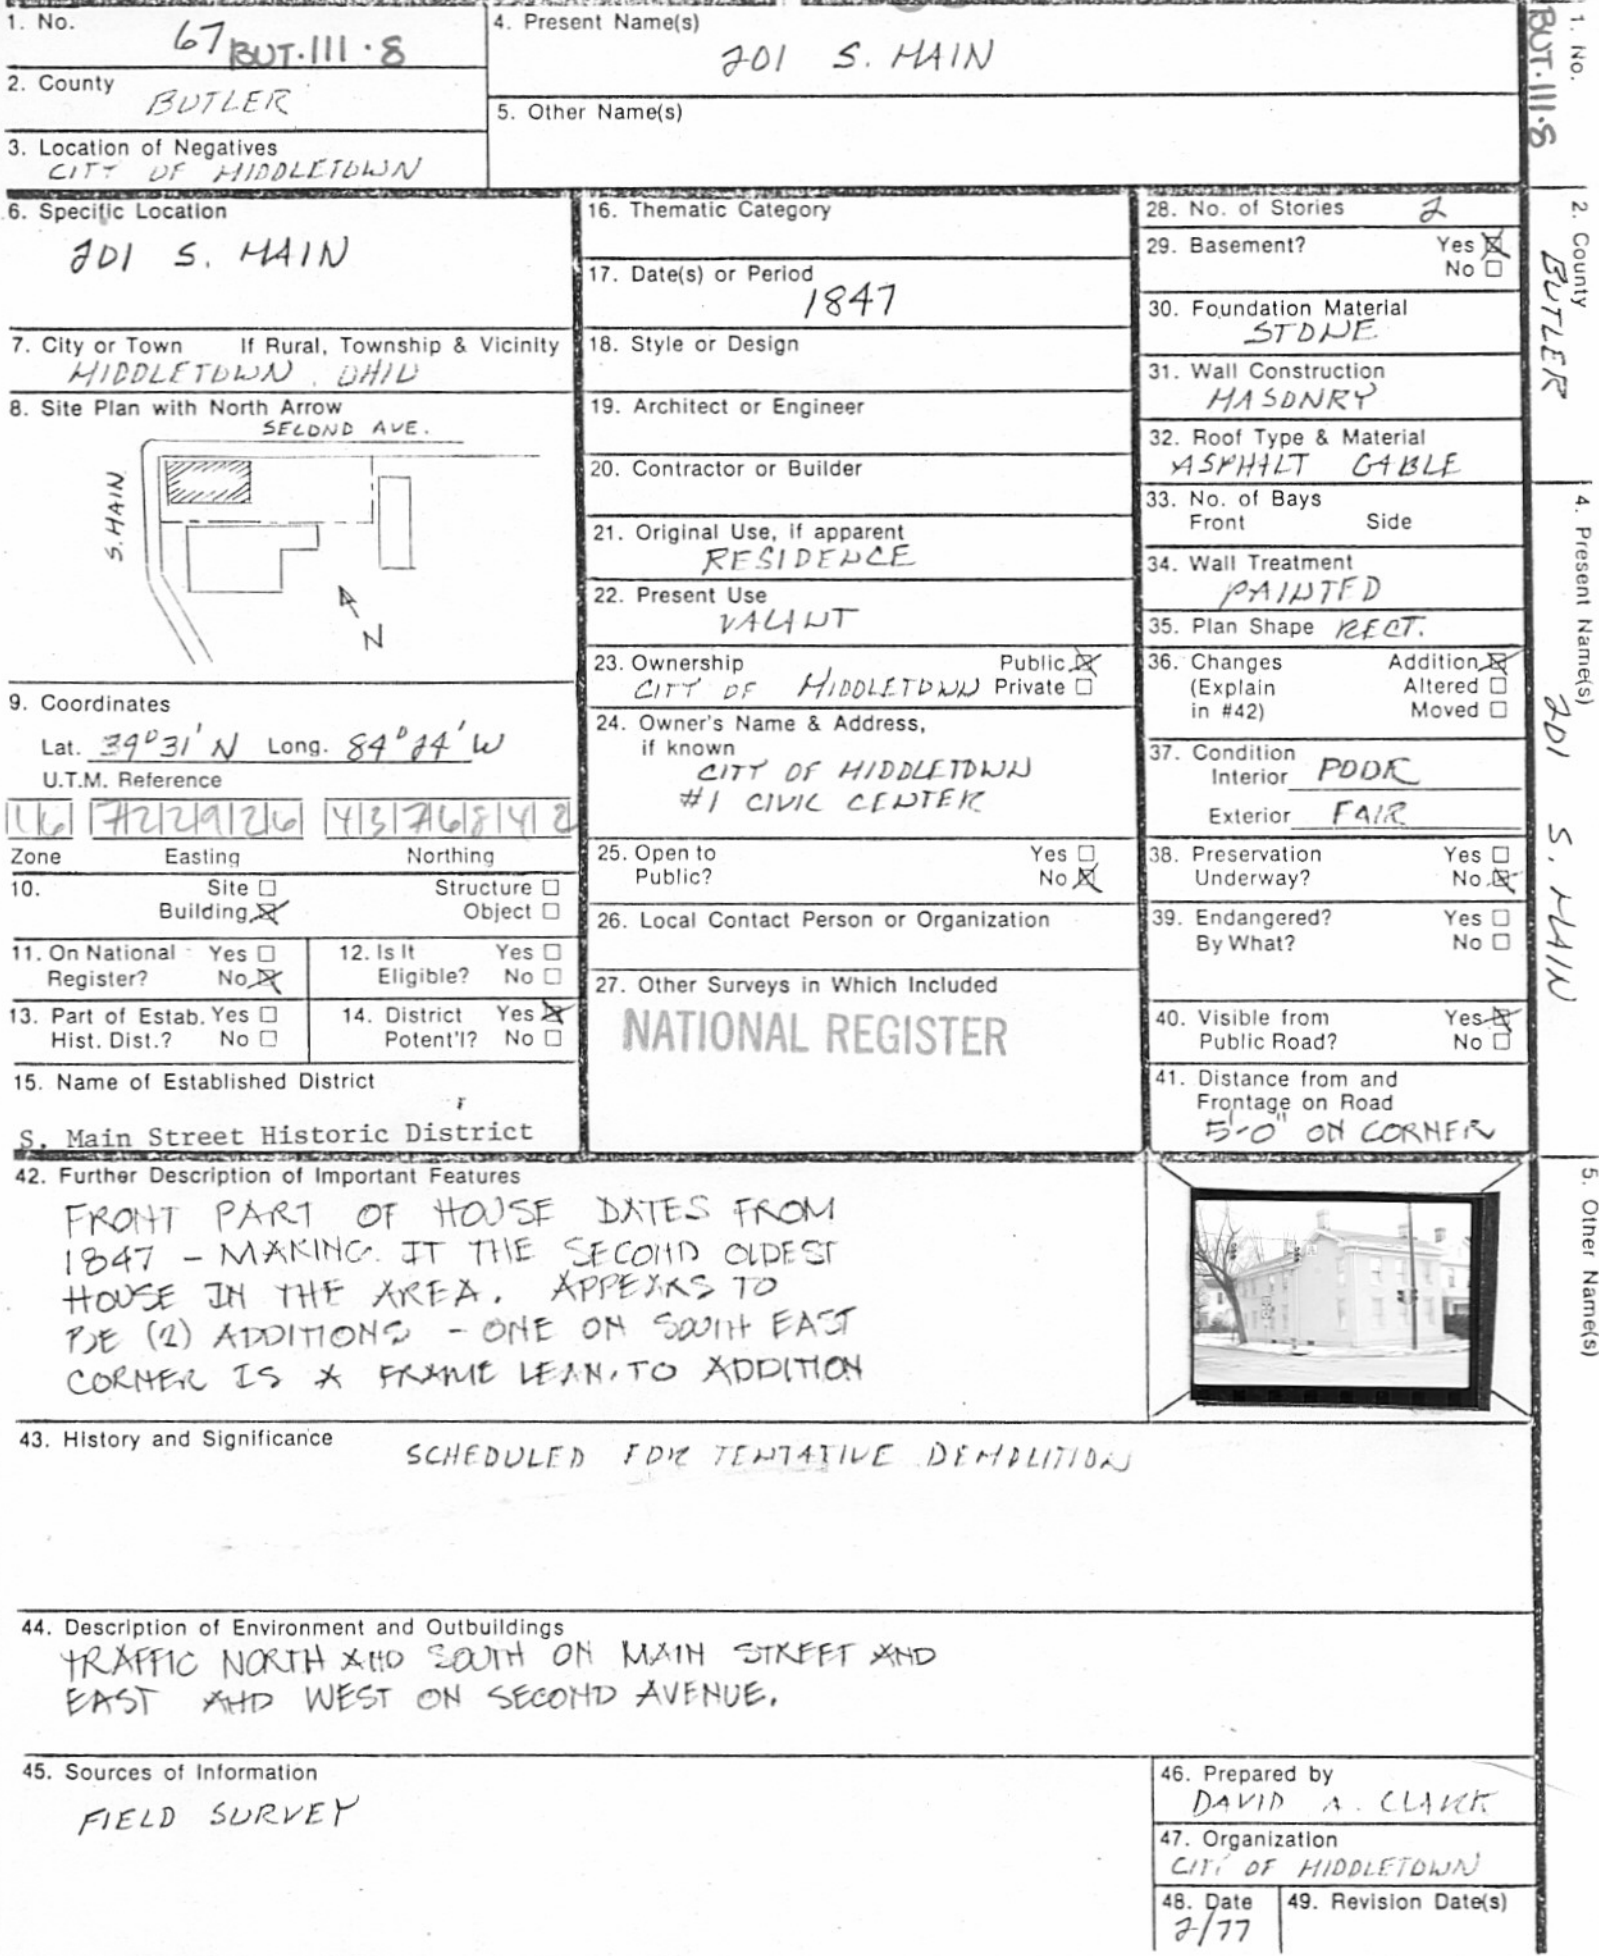 1. No.
67 BUT·111·8
2. County
BUTLER
3. Location of Negatives
CITY OF MIDDLETOWN
4. Present Name(s)
201 S. MAIN
5. Other Name(s)
6. Specific Location
201 S. MAIN
7. City or Town If Rural, Township & Vicinity
MIDDLETOWN, OHIO
8. Site Plan with North Arrow
SECOND AVE.
S. MAIN
N
9. Coordinates
Lat. 39°31'N Long. 84°24'W
U.T.M. Reference
16 722926 4376842
Zone Easting Northing
10. Site ☐ Structure ☐
Building ☒ Object ☐
11. On National Yes ☐
Register? No ☒
12. Is It Yes ☐
Eligible? No ☐
13. Part of Estab. Yes ☐
Hist. Dist.? No ☐
14. District Yes ☒
Potent'l? No ☐
15. Name of Established District
S. Main Street Historic District
16. Thematic Category
17. Date(s) or Period
1847
18. Style or Design
19. Architect or Engineer
20. Contractor or Builder
21. Original Use, if apparent
RESIDENCE
22. Present Use
VACANT
23. Ownership Public ☒
CITY OF MIDDLETOWN Private ☐
24. Owner's Name & Address,
if known
CITY OF MIDDLETOWN
#1 CIVIC CENTER
25. Open to Yes ☐
Public? No ☒
26. Local Contact Person or Organization
27. Other Surveys in Which Included
NATIONAL REGISTER
28. No. of Stories 2
29. Basement? Yes ☒
No ☐
30. Foundation Material
STONE
31. Wall Construction
MASONRY
32. Roof Type & Material
ASPHALT GABLE
33. No. of Bays
Front Side
34. Wall Treatment
PAINTED
35. Plan Shape RECT.
36. Changes Addition ☒
(Explain Altered ☐
in #42) Moved ☐
37. Condition
Interior POOR
Exterior FAIR
38. Preservation Yes ☐
Underway? No ☒
39. Endangered? Yes ☐
By What? No ☐
40. Visible from Yes ☒
Public Road? No ☐
41. Distance from and
Frontage on Road
5'-0" ON CORNER
42. Further Description of Important Features
FRONT PART OF HOUSE DATES FROM
1847 - MAKING IT THE SECOND OLDEST
HOUSE IN THE AREA. APPEARS TO
BE (2) ADDITIONS - ONE ON SOUTH EAST
CORNER IS A FRAME LEAN-TO ADDITION
43. History and Significance
SCHEDULED FOR TENTATIVE DEMOLITION
44. Description of Environment and Outbuildings
TRAFFIC NORTH AND SOUTH ON MAIN STREET AND
EAST AND WEST ON SECOND AVENUE.
45. Sources of Information
FIELD SURVEY
46. Prepared by
DAVID A. CLARK
47. Organization
CITY OF MIDDLETOWN
48. Date
2/77
49. Revision Date(s)
1. No.
BUT·111·8
2. County
BUTLER
4. Present Name(s)
201 S. MAIN
5. Other Name(s)